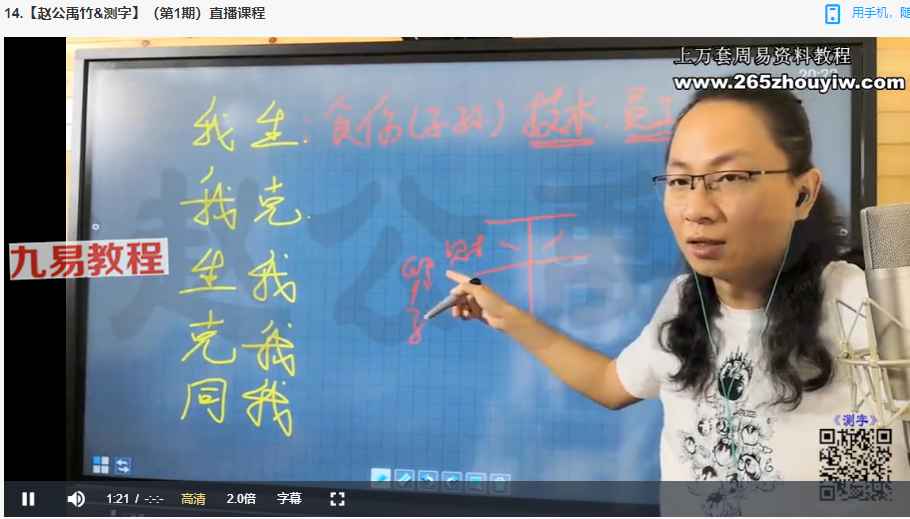 14.【赵公禹竹&测字】（第1期）直播课程
用手机、随
上万套周易资料教程
20:22
www.265zhouyiw.com
我生：食伤(子孙) 技术. 员工
我克.
财
生我
克我
同我
赵公禹
九易教程
《测字》
1:21 / -:-:- 高清 2.0倍 字幕